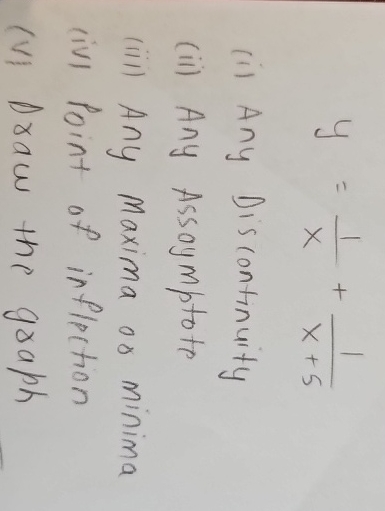 y = 1/x + 1/x+5
(i) Any Discontinuity
(ii) Any Assymptote
(iii) Any Maxima or minima
(iv) Point of inflection
(v) Draw the graph